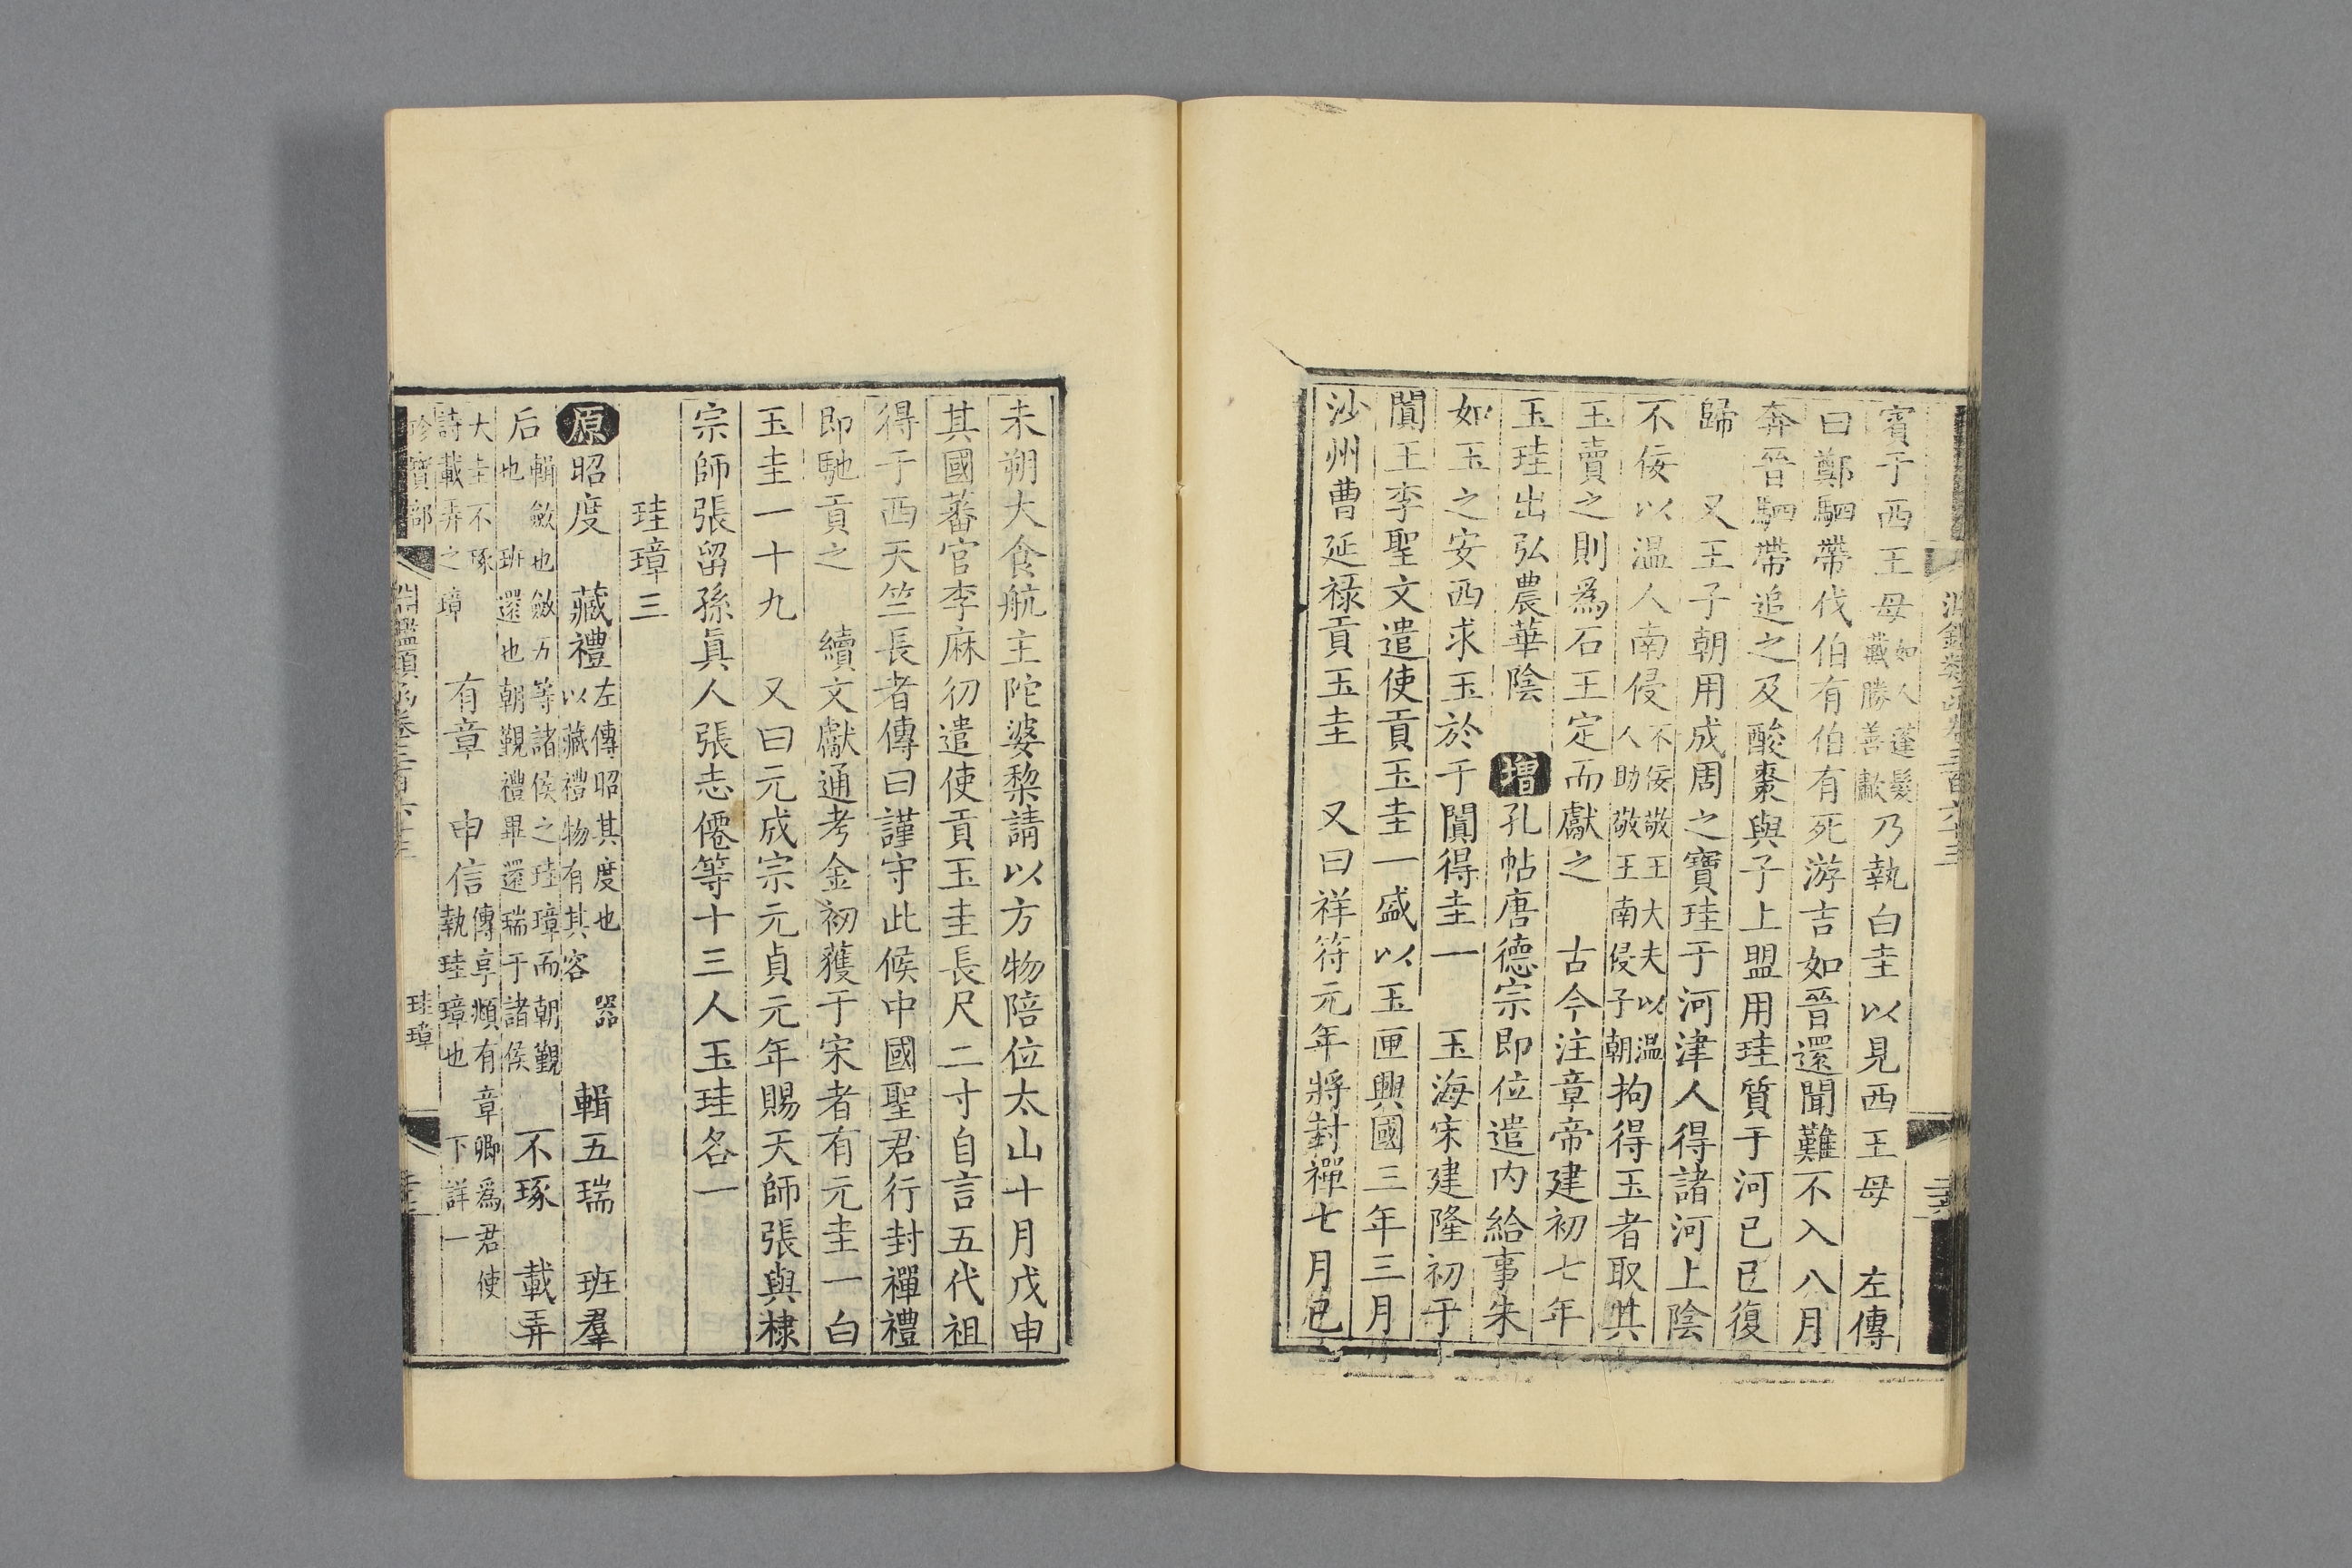 賓于西王母如人蓬髮戴勝善嘯乃執白圭以見西王母　左傳
曰鄭駟帶伐伯有伯有死游吉如晉還聞難不入八月
奔晉駟帶追之及酸棗與子上盟用珪質于河已已復
歸　又王子朝用成周之寶珪于河津人得諸河上陰
不佞以温人南侵不佞敬王大夫以温人助敬王南侵子朝拘得玉者取其
玉賣之則為石王定而獻之　古今注章帝建初七年
玉珪出弘農華陰　増孔帖唐德宗即位遣内給事朱
如玉之安西求玉於于闐得圭一　玉海宋建隆初于
闐王李聖文遣使貢玉圭一盛以玉匣興國三年三月
沙州曹延禄貢玉圭　又曰祥符元年將封禪七月已
未朔大食航主陀婆棃請以方物陪位太山十月戊申
其國蕃官李麻彷遣使貢玉圭長尺二寸自言五代祖
得于西天竺長者傳曰謹守此候中國聖君行封禪禮
即馳貢之　續文獻通考金初獲于宋者有元圭一白
玉圭一十九　又曰元成宗元貞元年賜天師張與棣
宗師張留孫眞人張志僊等十三人玉珪各一
珪璋三
原昭度　藏禮左傳昭其度也　器以藏禮物有其容　輯五瑞　班羣
后輯斂也斂五等諸侯之珪璋而朝覲也　班還也朝覲禮畢還瑞于諸侯　不琢　載弄
大圭不琢　詩載弄之璋　有章　申信傳享頫有章卿為君使執珪璋也　下詳一
珍寶部　淵鑑類函卷三百六十三　珪璋